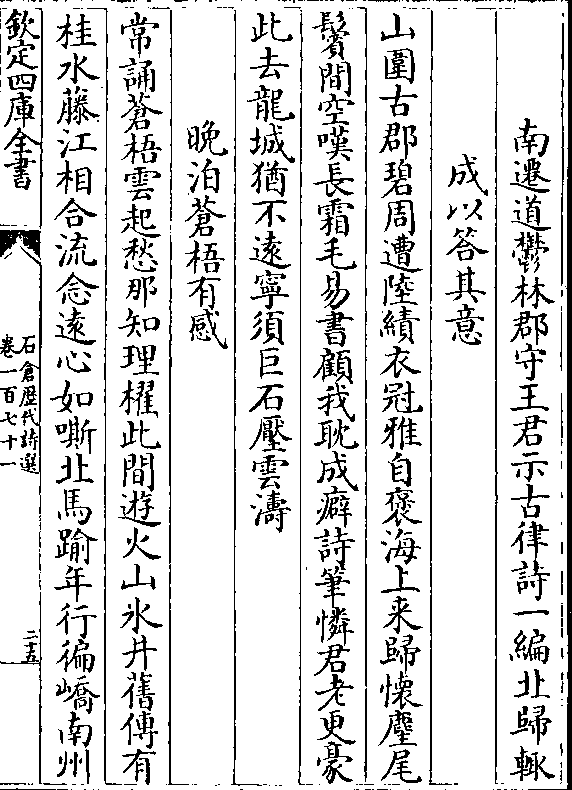 南遷道鬱林郡守王君示古律詩一編北歸輙
成以答其意
山圍古郡碧周遭陸績衣冠雅自褒海上来歸懐麈尾
鬢間空嘆長霜毛易書顧我耽成癖詩筆憐君老更豪
此去龍城猶不逺寧須巨石壓雲濤
晩泊蒼梧有感
常誦蒼梧雲起愁那知理櫂此間遊火山氷井舊傳有
桂水藤江相合流念逺心如嘶北馬踰年行徧嶠南州
欽定四庫全書
石倉歴代詩選
卷一百七十一
二十五